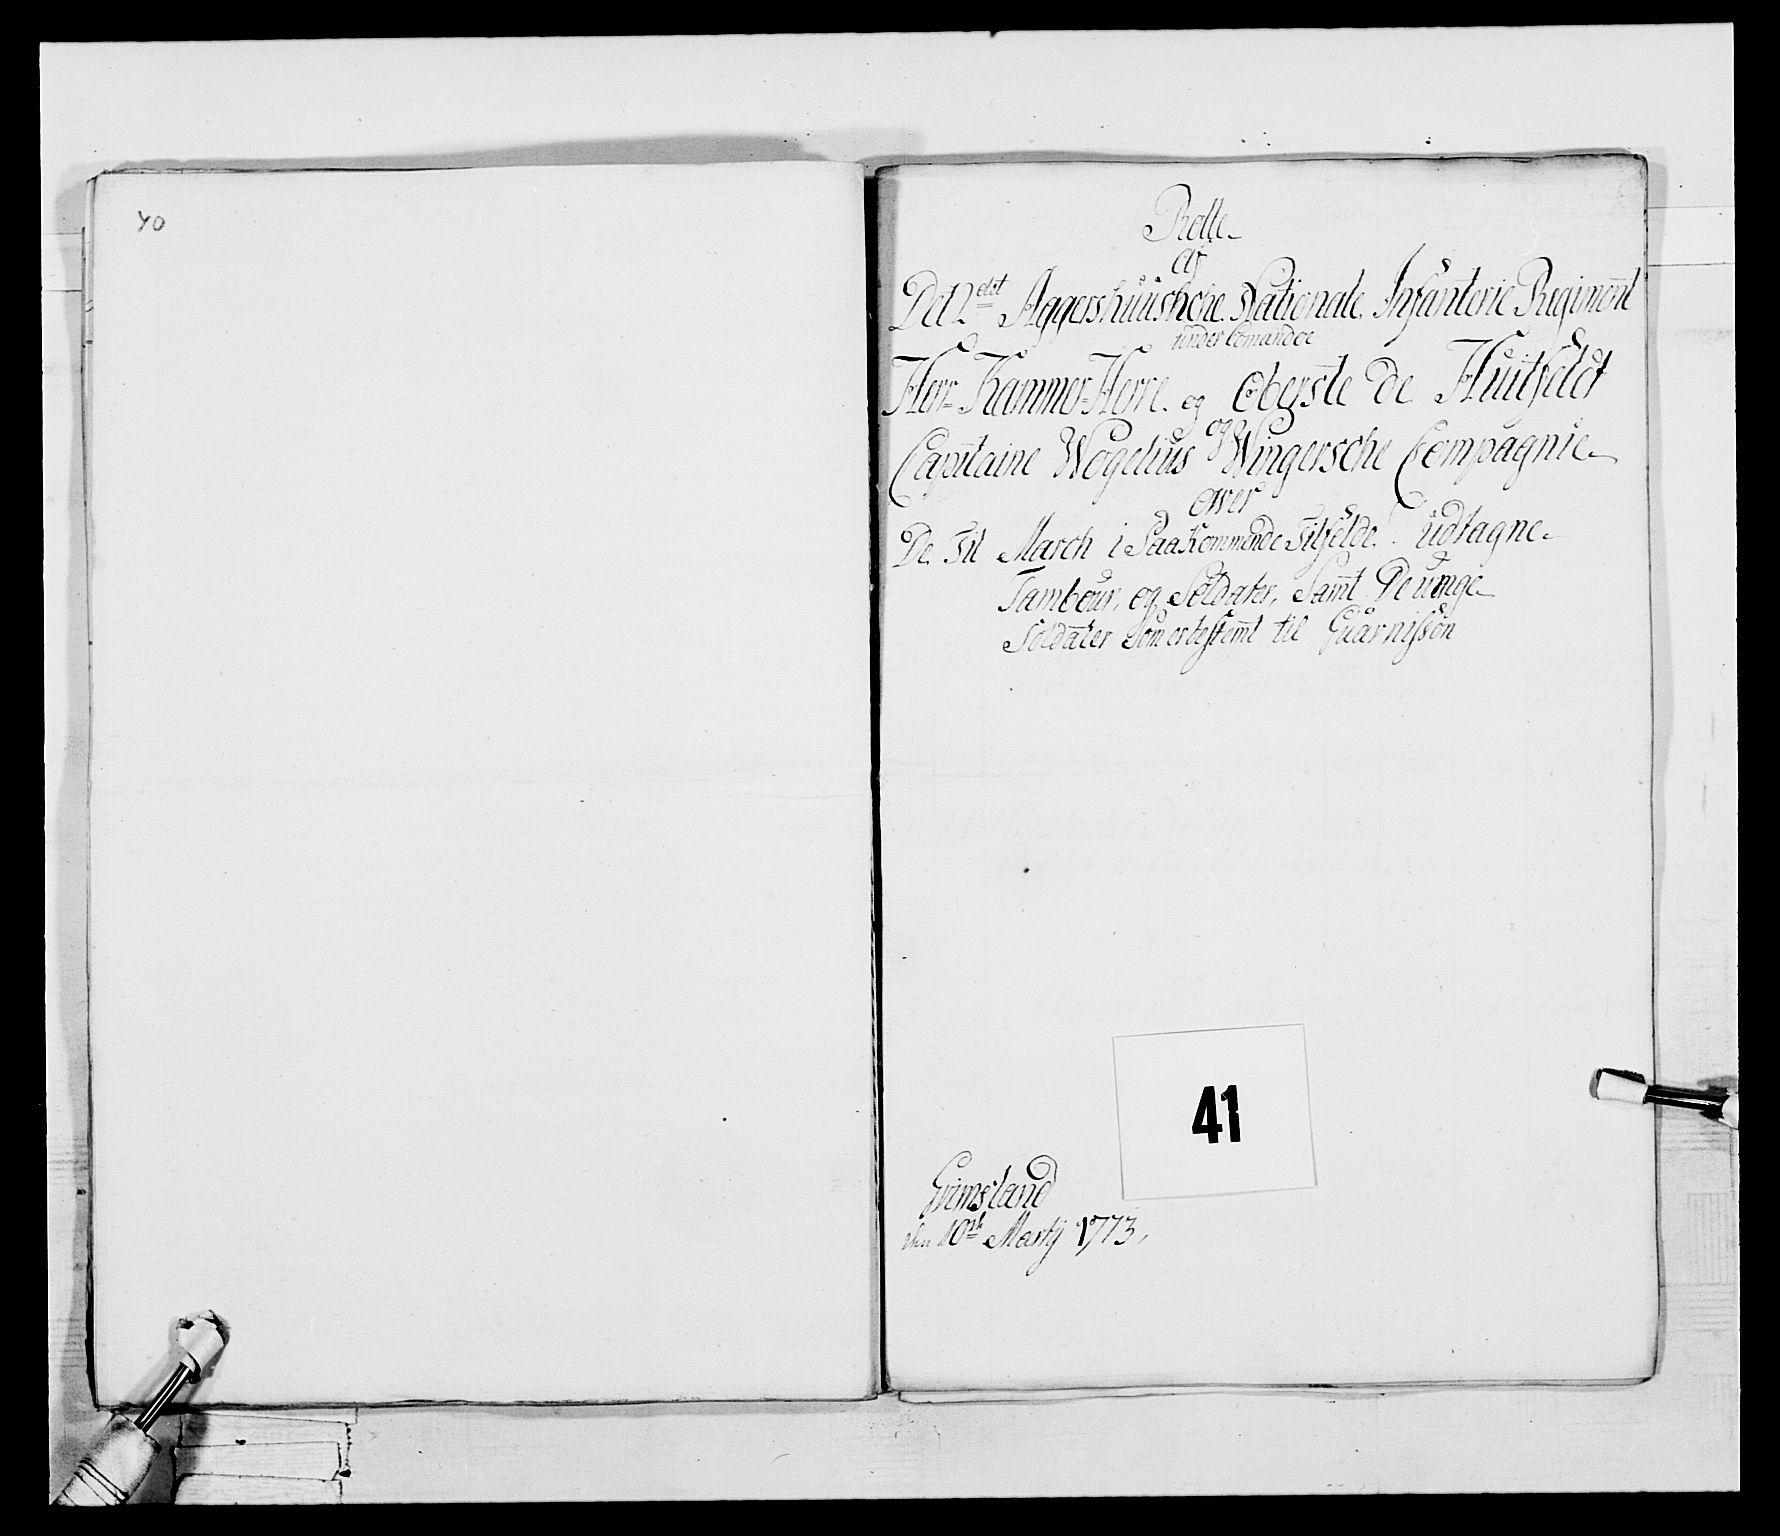 40
Rolle
af
Det 2det Aggershuusische Nationale Infanterie Regiment
under Comandoe
Herr Kammer-Herre og Oberste de Huitfeldt
Capitaine Wogelius og Wingersche Compagnie
over
De til March i Paakommende Tilfelde udtagne
Tambour, og Soldater, Samt De unge
Soldater Som er bestemt til Guarnisson
41
Grimsland
den 10de Martij 1773,